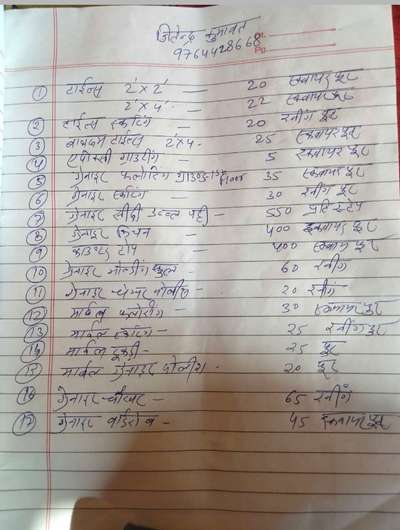 जितेन्द्र कुमावत
9764428668
① टाईल्स 2'×2' — 20 स्क्वायर फूट
2'×4' — 22 स्क्वायर फूट
② टाईल्स स्कटिंग — 20 रनींग फूट
③ बाथरूम टाईल्स 2'×4' 25 स्क्वायर फूट
④ एपोक्सी ग्राउटींग — 5 स्क्वायर फूट
⑤ ग्रेनाइट फ्लोरिंग floor 35 स्क्वायर फूट
⑥ ग्रेनाइट स्कटिंग — 30 रनींग फूट
⑦ ग्रेनाइट सीढी डब्बल पट्टी — 550 प्रति स्टेप
⑧ ग्रेनाइट किचन — 400 स्क्वायर फूट
⑨ काउन्टर टोप — 400 स्क्वायर फूट
⑩ ग्रेनाइट मोल्डींग फुल — 60 रनींग
⑪ ग्रेनाइट चेम्फर पोलीश — 20 रनींग
⑫ मार्बल फ्लोरींग — 30 स्क्वायर फूट
⑬ मार्बल स्कटिंग — 25 रनींग फूट
⑭ मार्बल टुकड़ी — 25 फूट
⑮ मार्बल ग्रेनाइट पोलीश - 20 फूट
⑯ ग्रेनाइट — 65 रनींग
⑰ ग्रेनाइट वार्डरोब — 45 स्क्वायर फूट